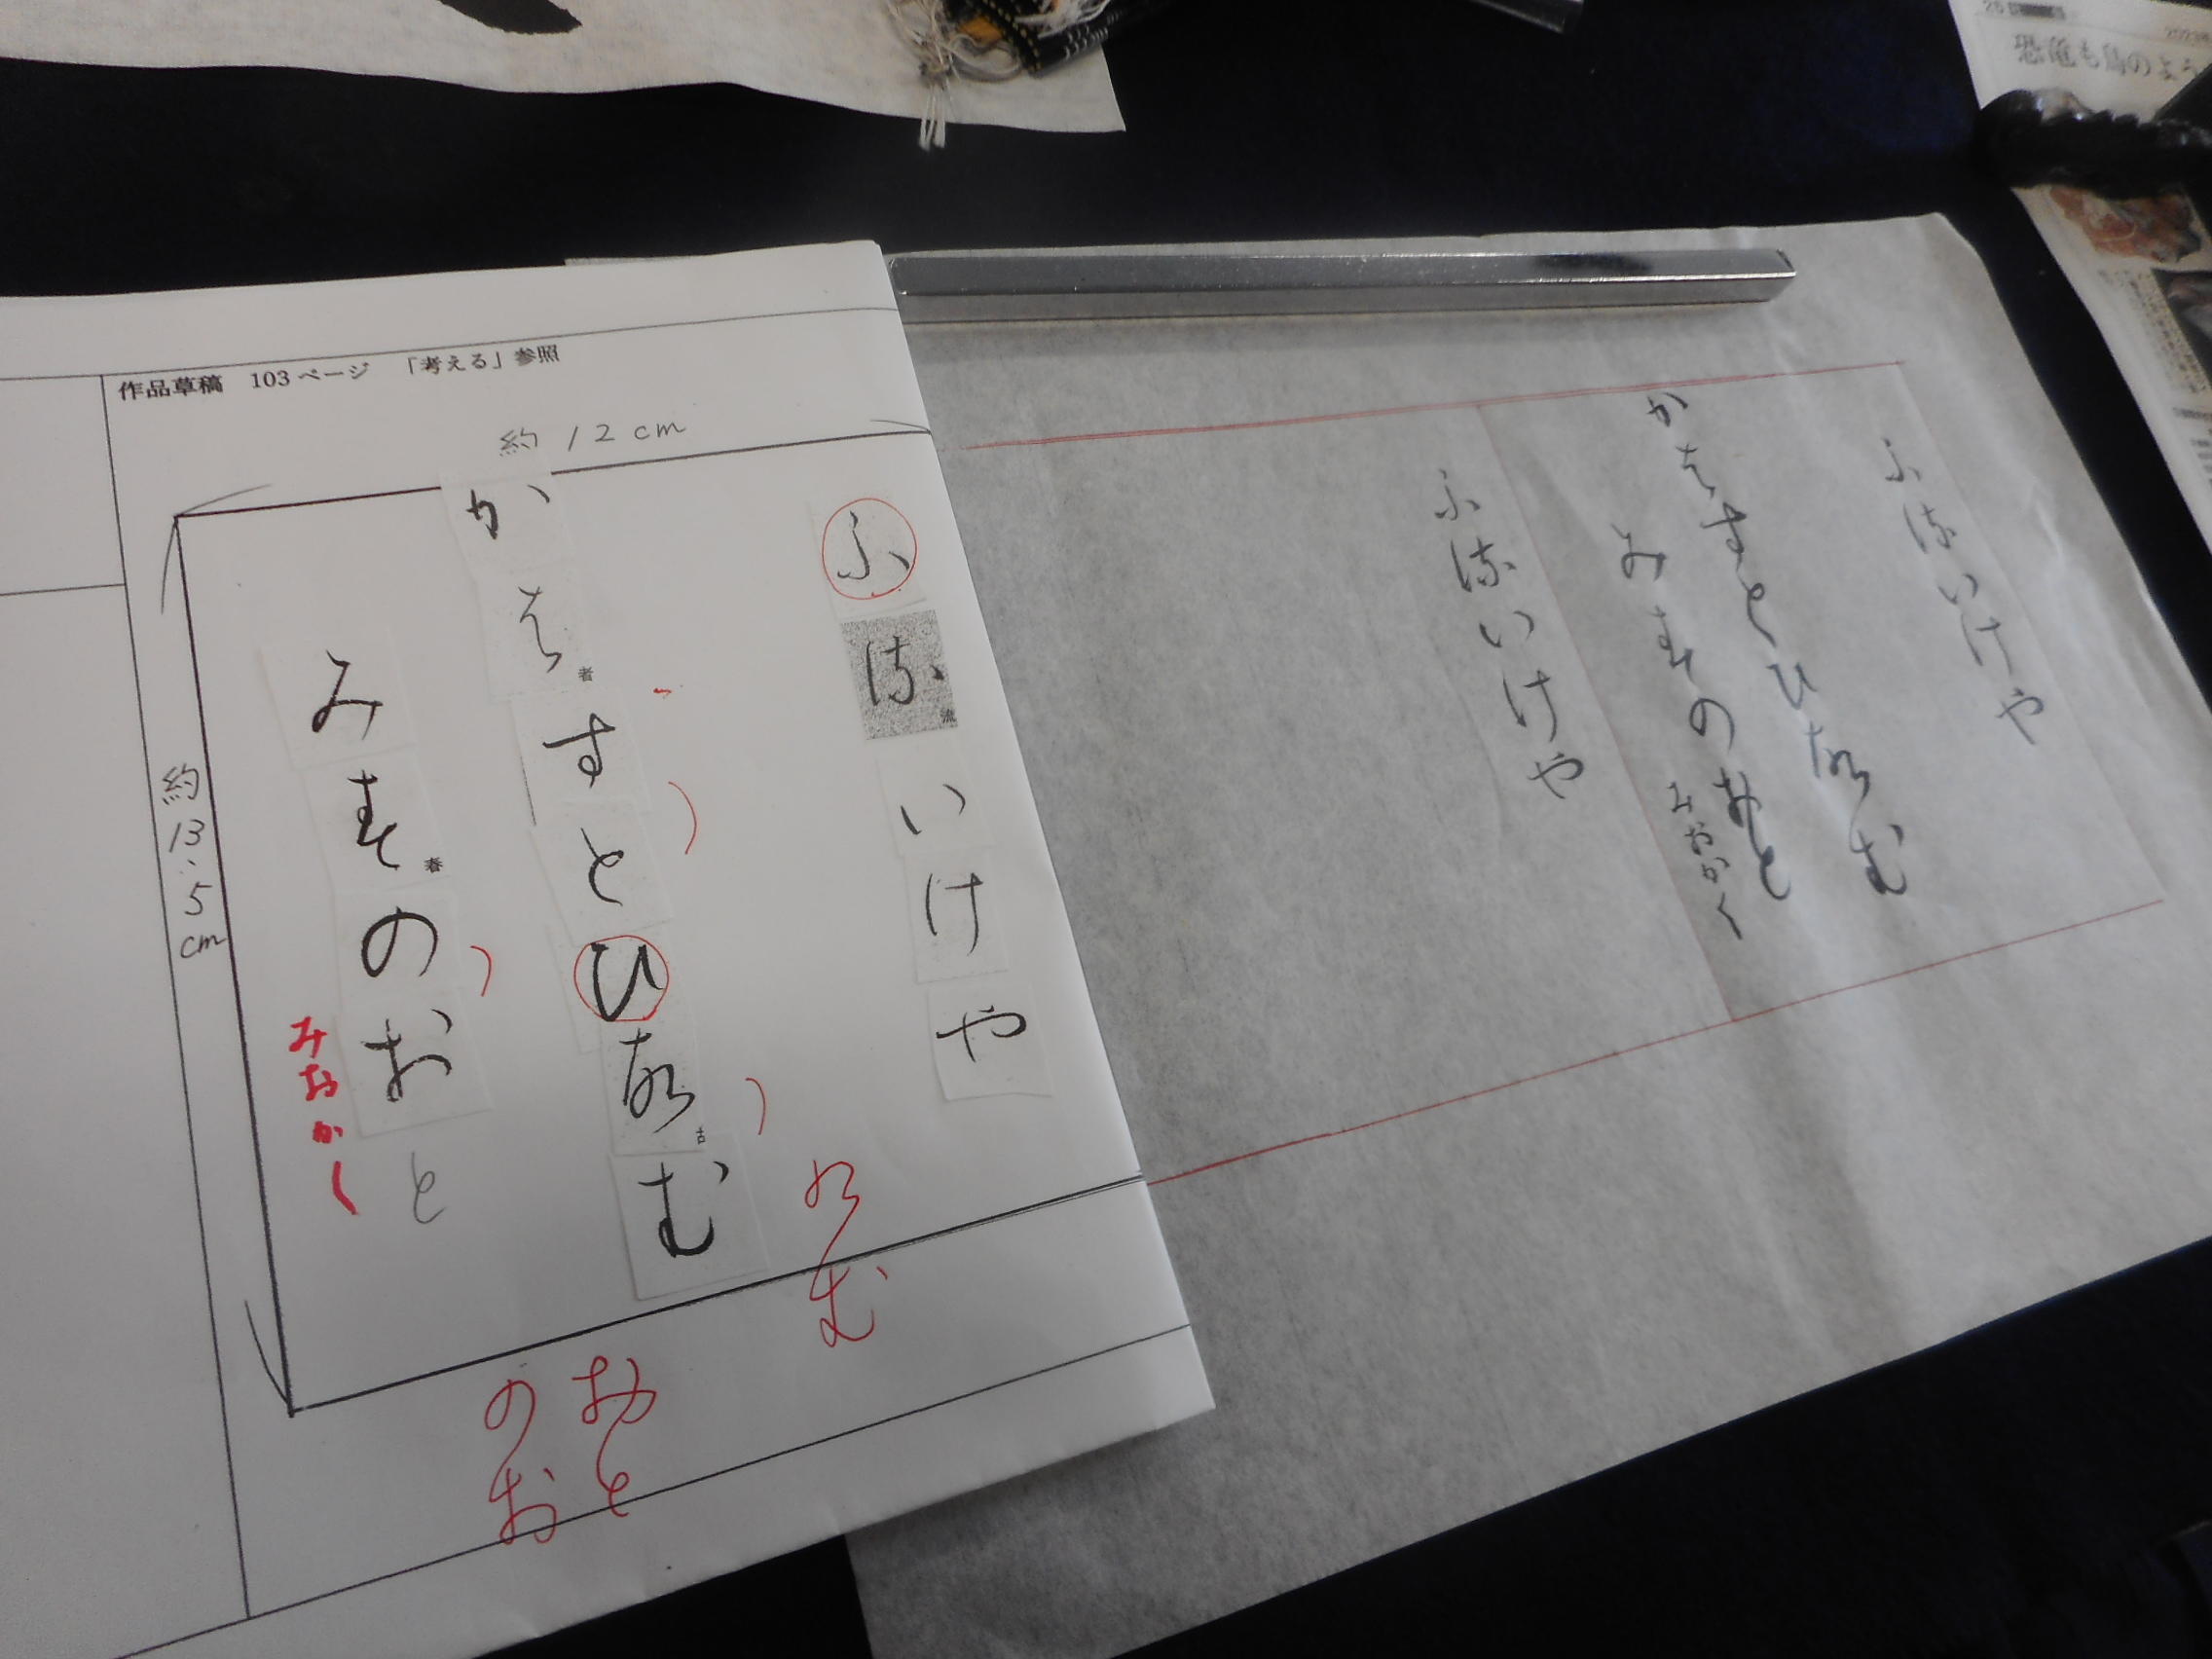 作品草稿 103ページ 「考える」参照
約12cm
約13.5cm
ふ流いけや
流
か者すとひ古む
者
古
み春のおと
春
みおかく
のむ
おと
のお
ふ流いけや
か者すとひ古む
み春のおと
みおかく
ふ流いけや
恐竜も鳥のよう